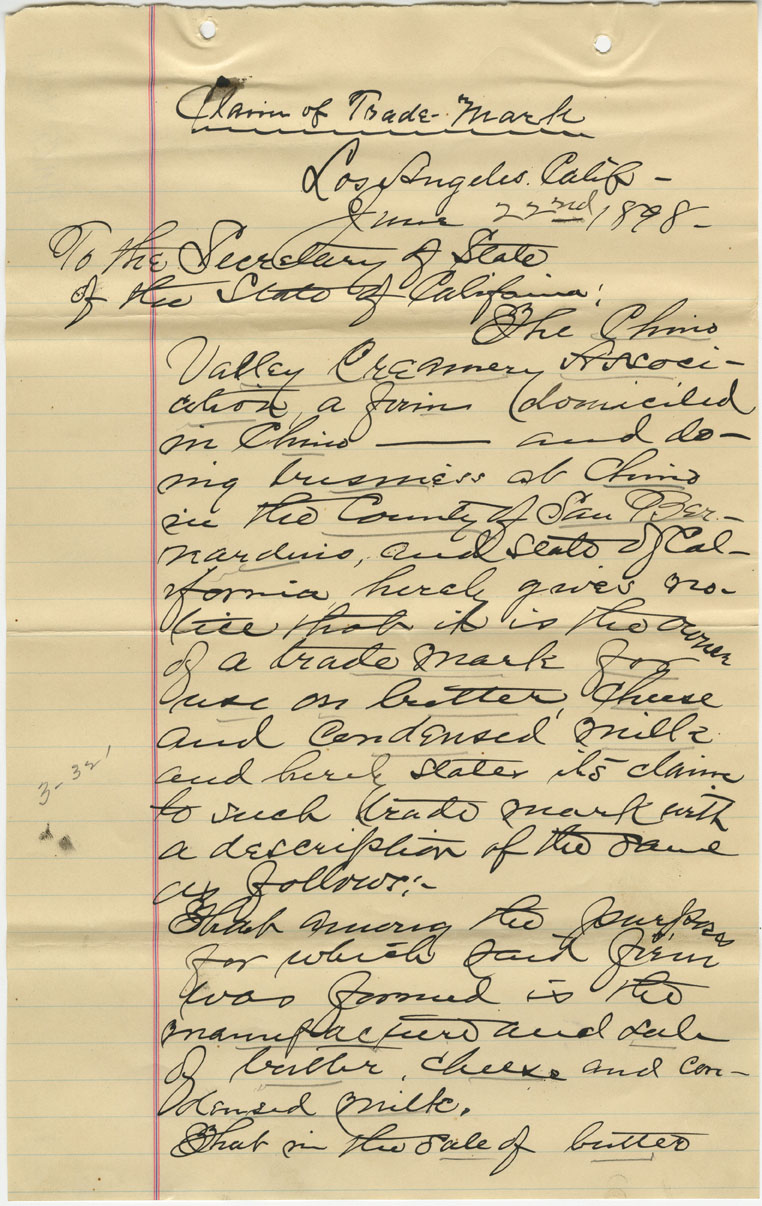 Claim of Trade-Mark
Los Angeles. Calif -
June 22nd, 1898 -
To the Secretary of State
of the State of California:
The Chino
Valley Creamery Associ-
ation, a firm (domiciled
in Chino —— and do-
ing business at Chino
in the County of San Ber-
nardino, and State of Cal-
ifornia hereby gives no-
tice that it is the owner
of a trade mark for
use on butter, cheese
and condensed milk
and hereby states its claim
to such trade mark with
a description of the same
as follows:-
That among the purposes
for which said firm
was formed is the
manufacture and sale
of butter, cheese and con-
densed milk.
That in the sale of butter
3-32'